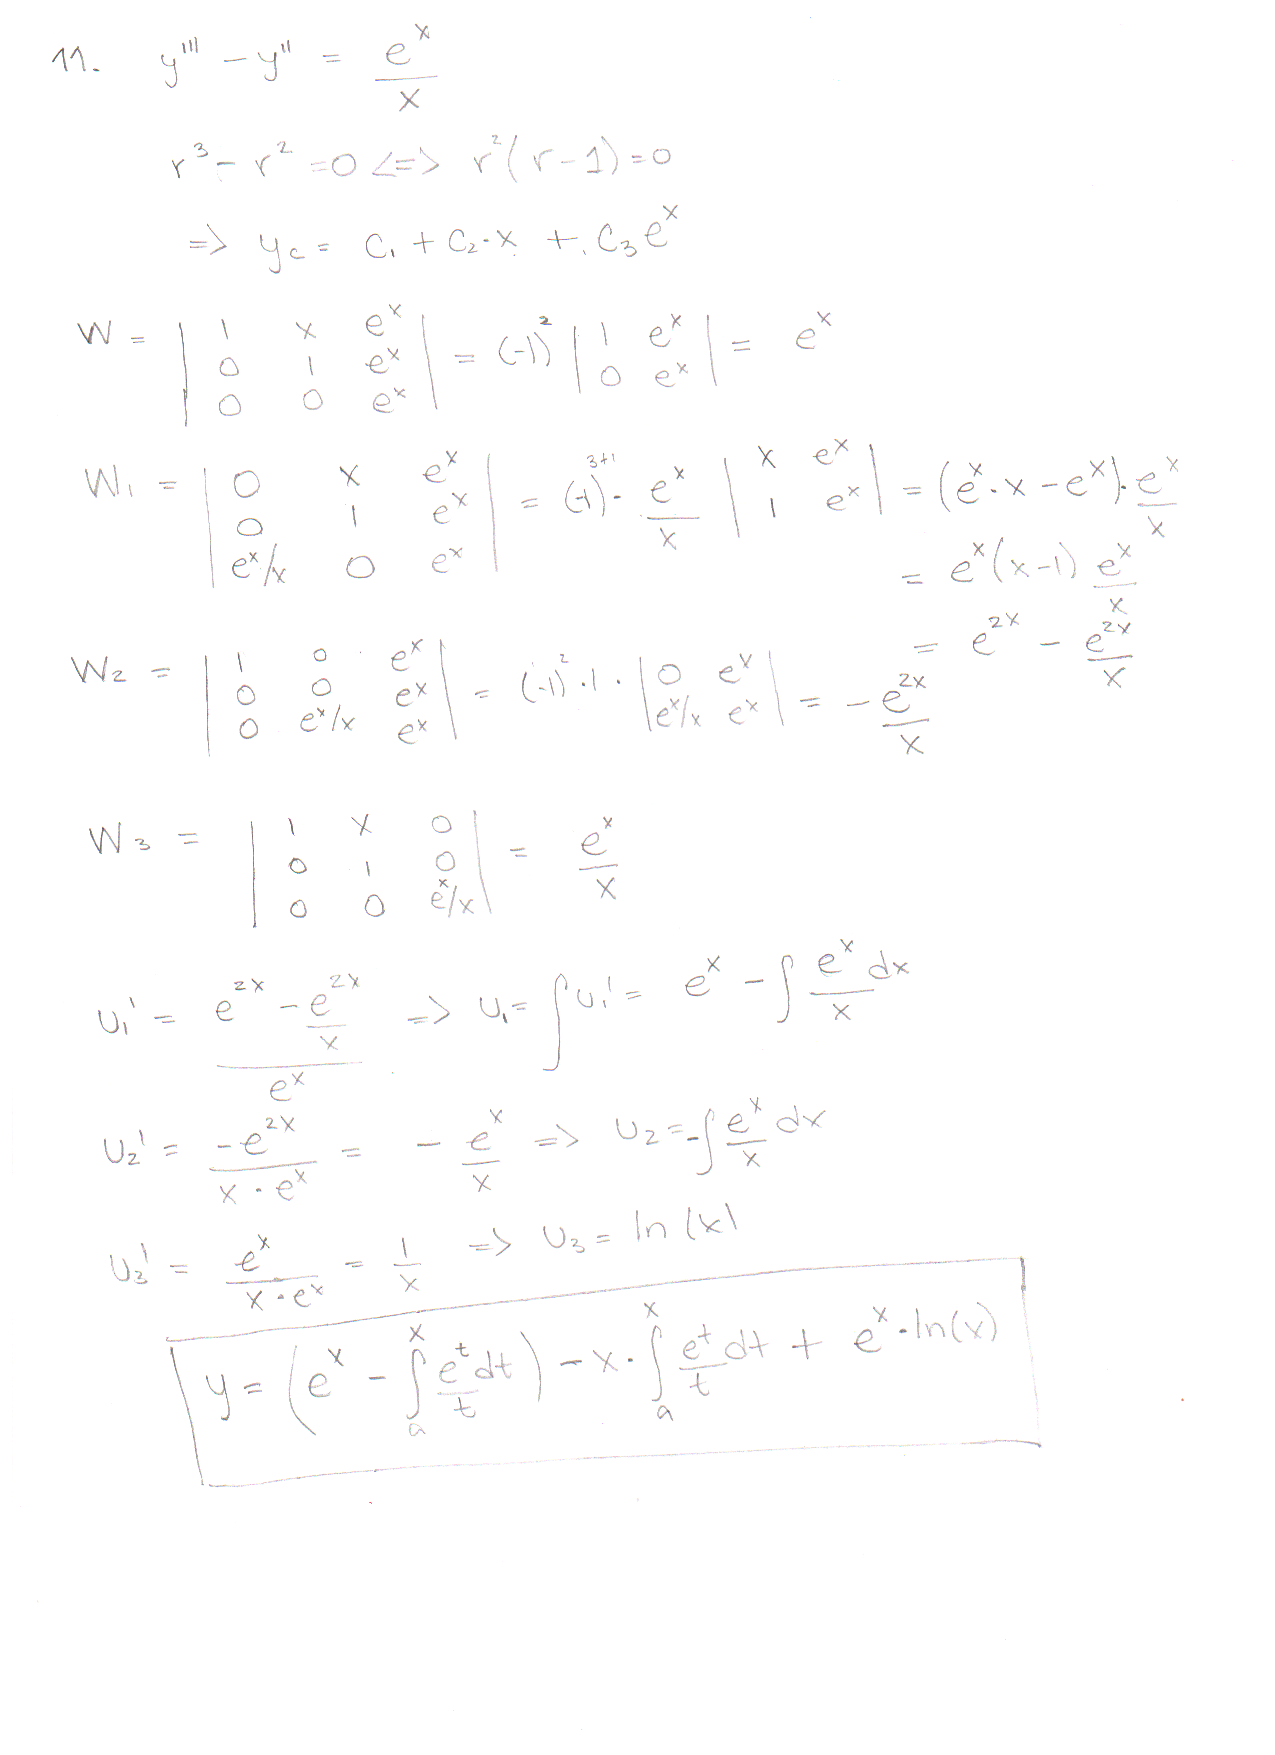 11. y''' - y'' = e^x/x
r^3 - r^2 = 0 <=> r^2(r-1) = 0
=> y_c = C_1 + C_2·x + C_3 e^x
W = | 1 x e^x ; 0 1 e^x ; 0 0 e^x | = (-1)^2 | 1 e^x ; 0 e^x | = e^x
W_1 = | 0 x e^x ; 0 1 e^x ; e^x/x 0 e^x | = (-1)^{3+1} · e^x/x | x e^x ; 1 e^x | = (e^x·x - e^x)·e^x/x
= e^x(x-1) e^x/x
= e^{2x} - e^{2x}/x
W_2 = | 1 0 e^x ; 0 0 e^x ; 0 e^x/x e^x | = (-1)^2·1· | 0 e^x ; e^x/x e^x | = - e^{2x}/x
W_3 = | 1 x 0 ; 0 1 0 ; 0 0 e^x/x | = e^x/x
u_1' = (e^{2x} - e^{2x}/x)/e^x => u_1 = ∫u_1' = e^x - ∫ e^x/x dx
u_2' = -e^{2x}/(x·e^x) = - e^x/x => u_2 = -∫ e^x/x dx
u_3' = e^x/(x·e^x) = 1/x => u_3 = ln|x|
y = (e^x - ∫_a^x e^t/t dt) - x·∫_a^x e^t/t dt + e^x·ln(x)